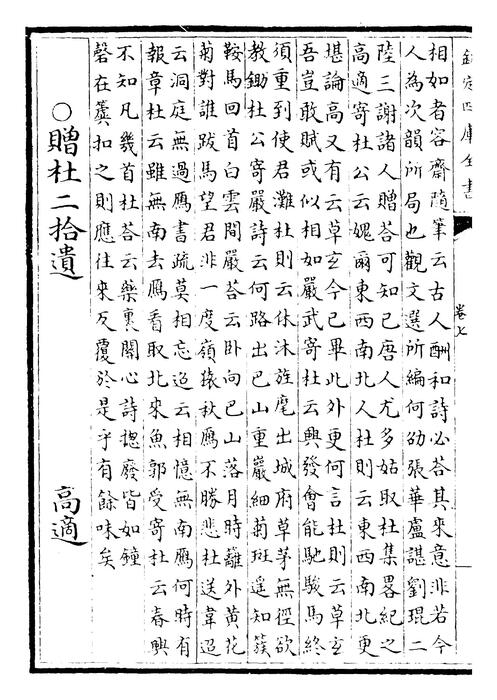 欽定四庫全書
卷七
相如者容齋隨筆云古人酬和詩必荅其來意非若今
人為次韻所局也觀文選所編何劭張華盧諶劉琨二
陸三謝諸人贈荅可知已唐人尤多姑取杜集畧紀之
高適寄杜公云媿爾東西南北人杜則云東西南北更
堪論高又有云草玄今已畢此外更何言杜則云草玄
吾豈敢賦或似相如嚴武寄杜云興發會能馳駿馬終
須重到使君灘杜則云休沐旌麾出城府草茅無徑欲
教鋤杜公寄嚴詩云何路出巴山重巖細菊斑遥知簇
鞍馬回首白雲間嚴荅云卧向巴山落月時籬外黄花
菊對誰跋馬望君非一度嶺猿秋鴈不勝悲杜送韋迢
云洞庭無過鴈書疏莫相忘迢云相憶無南鴈何時有
報章杜云雖無南去鴈看取北來魚郭受寄杜云春興
不知凡幾首杜荅云藥裹關心詩揔廢皆如鐘
磬在簴扣之則應往來反覆於是乎有餘味矣
○贈杜二拾遺 高適